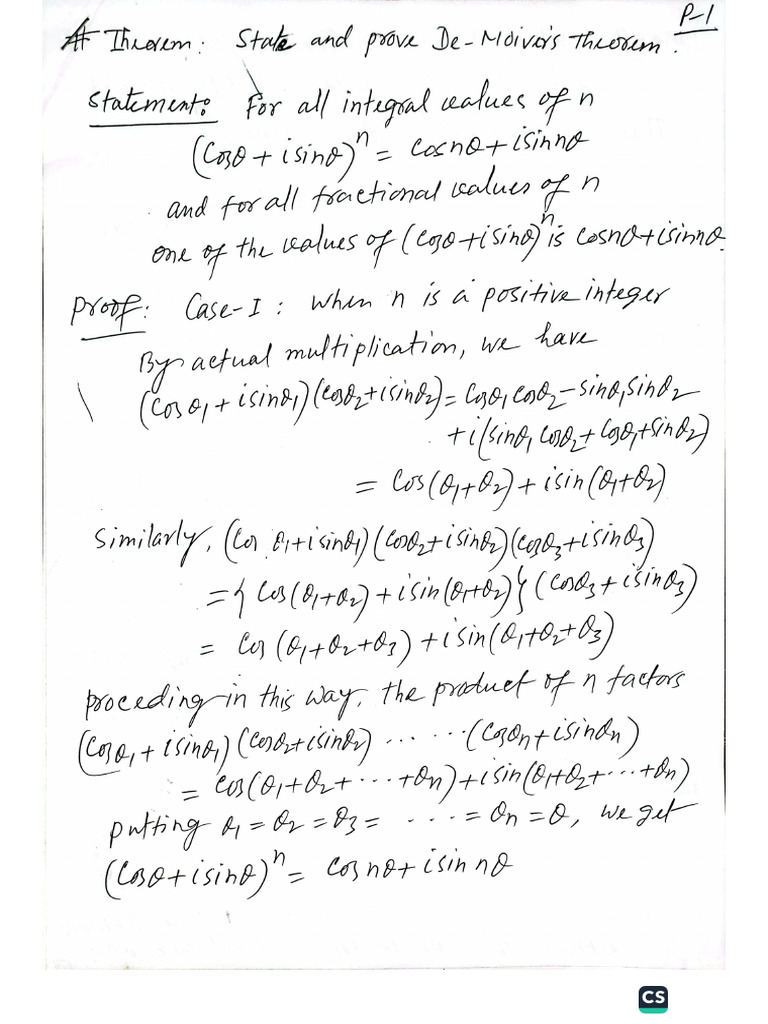 P-1
# Theorem: State and prove De-Moivre's Theorem.
Statement: For all integral values of n
(cosθ + isinθ)^n = cosnθ + isinnθ
and for all fractional values of n
one of the values of (cosθ+isinθ)^n is cosnθ+isinnθ.
Proof: Case-I: when n is a positive integer
By actual multiplication, we have
(cosθ₁ + isinθ₁)(cosθ₂+isinθ₂) = cosθ₁cosθ₂ - sinθ₁sinθ₂
+i(sinθ₁cosθ₂+cosθ₁+sinθ₂)
= cos(θ₁+θ₂) + isin(θ₁+θ₂)
Similarly, (cos θ₁+isinθ₁)(cosθ₂+isinθ₂)(cosθ₃+isinθ₃)
= { cos(θ₁+θ₂) + isin(θ₁+θ₂)} (cosθ₃+isinθ₃)
= cos (θ₁+θ₂+θ₃) + isin(θ₁+θ₂+θ₃)
proceding in this way, the product of n factors
(cosθ₁ + isinθ₁)(cosθ₂+isinθ₂) ...... (cosθn+isinθn)
= cos(θ₁+θ₂+...+θn)+isin(θ₁+θ₂+...+θn)
putting θ₁ = θ₂ = θ₃ = .... = θn = θ, we get
(cosθ+isinθ)^n = cosnθ+isin nθ
CS